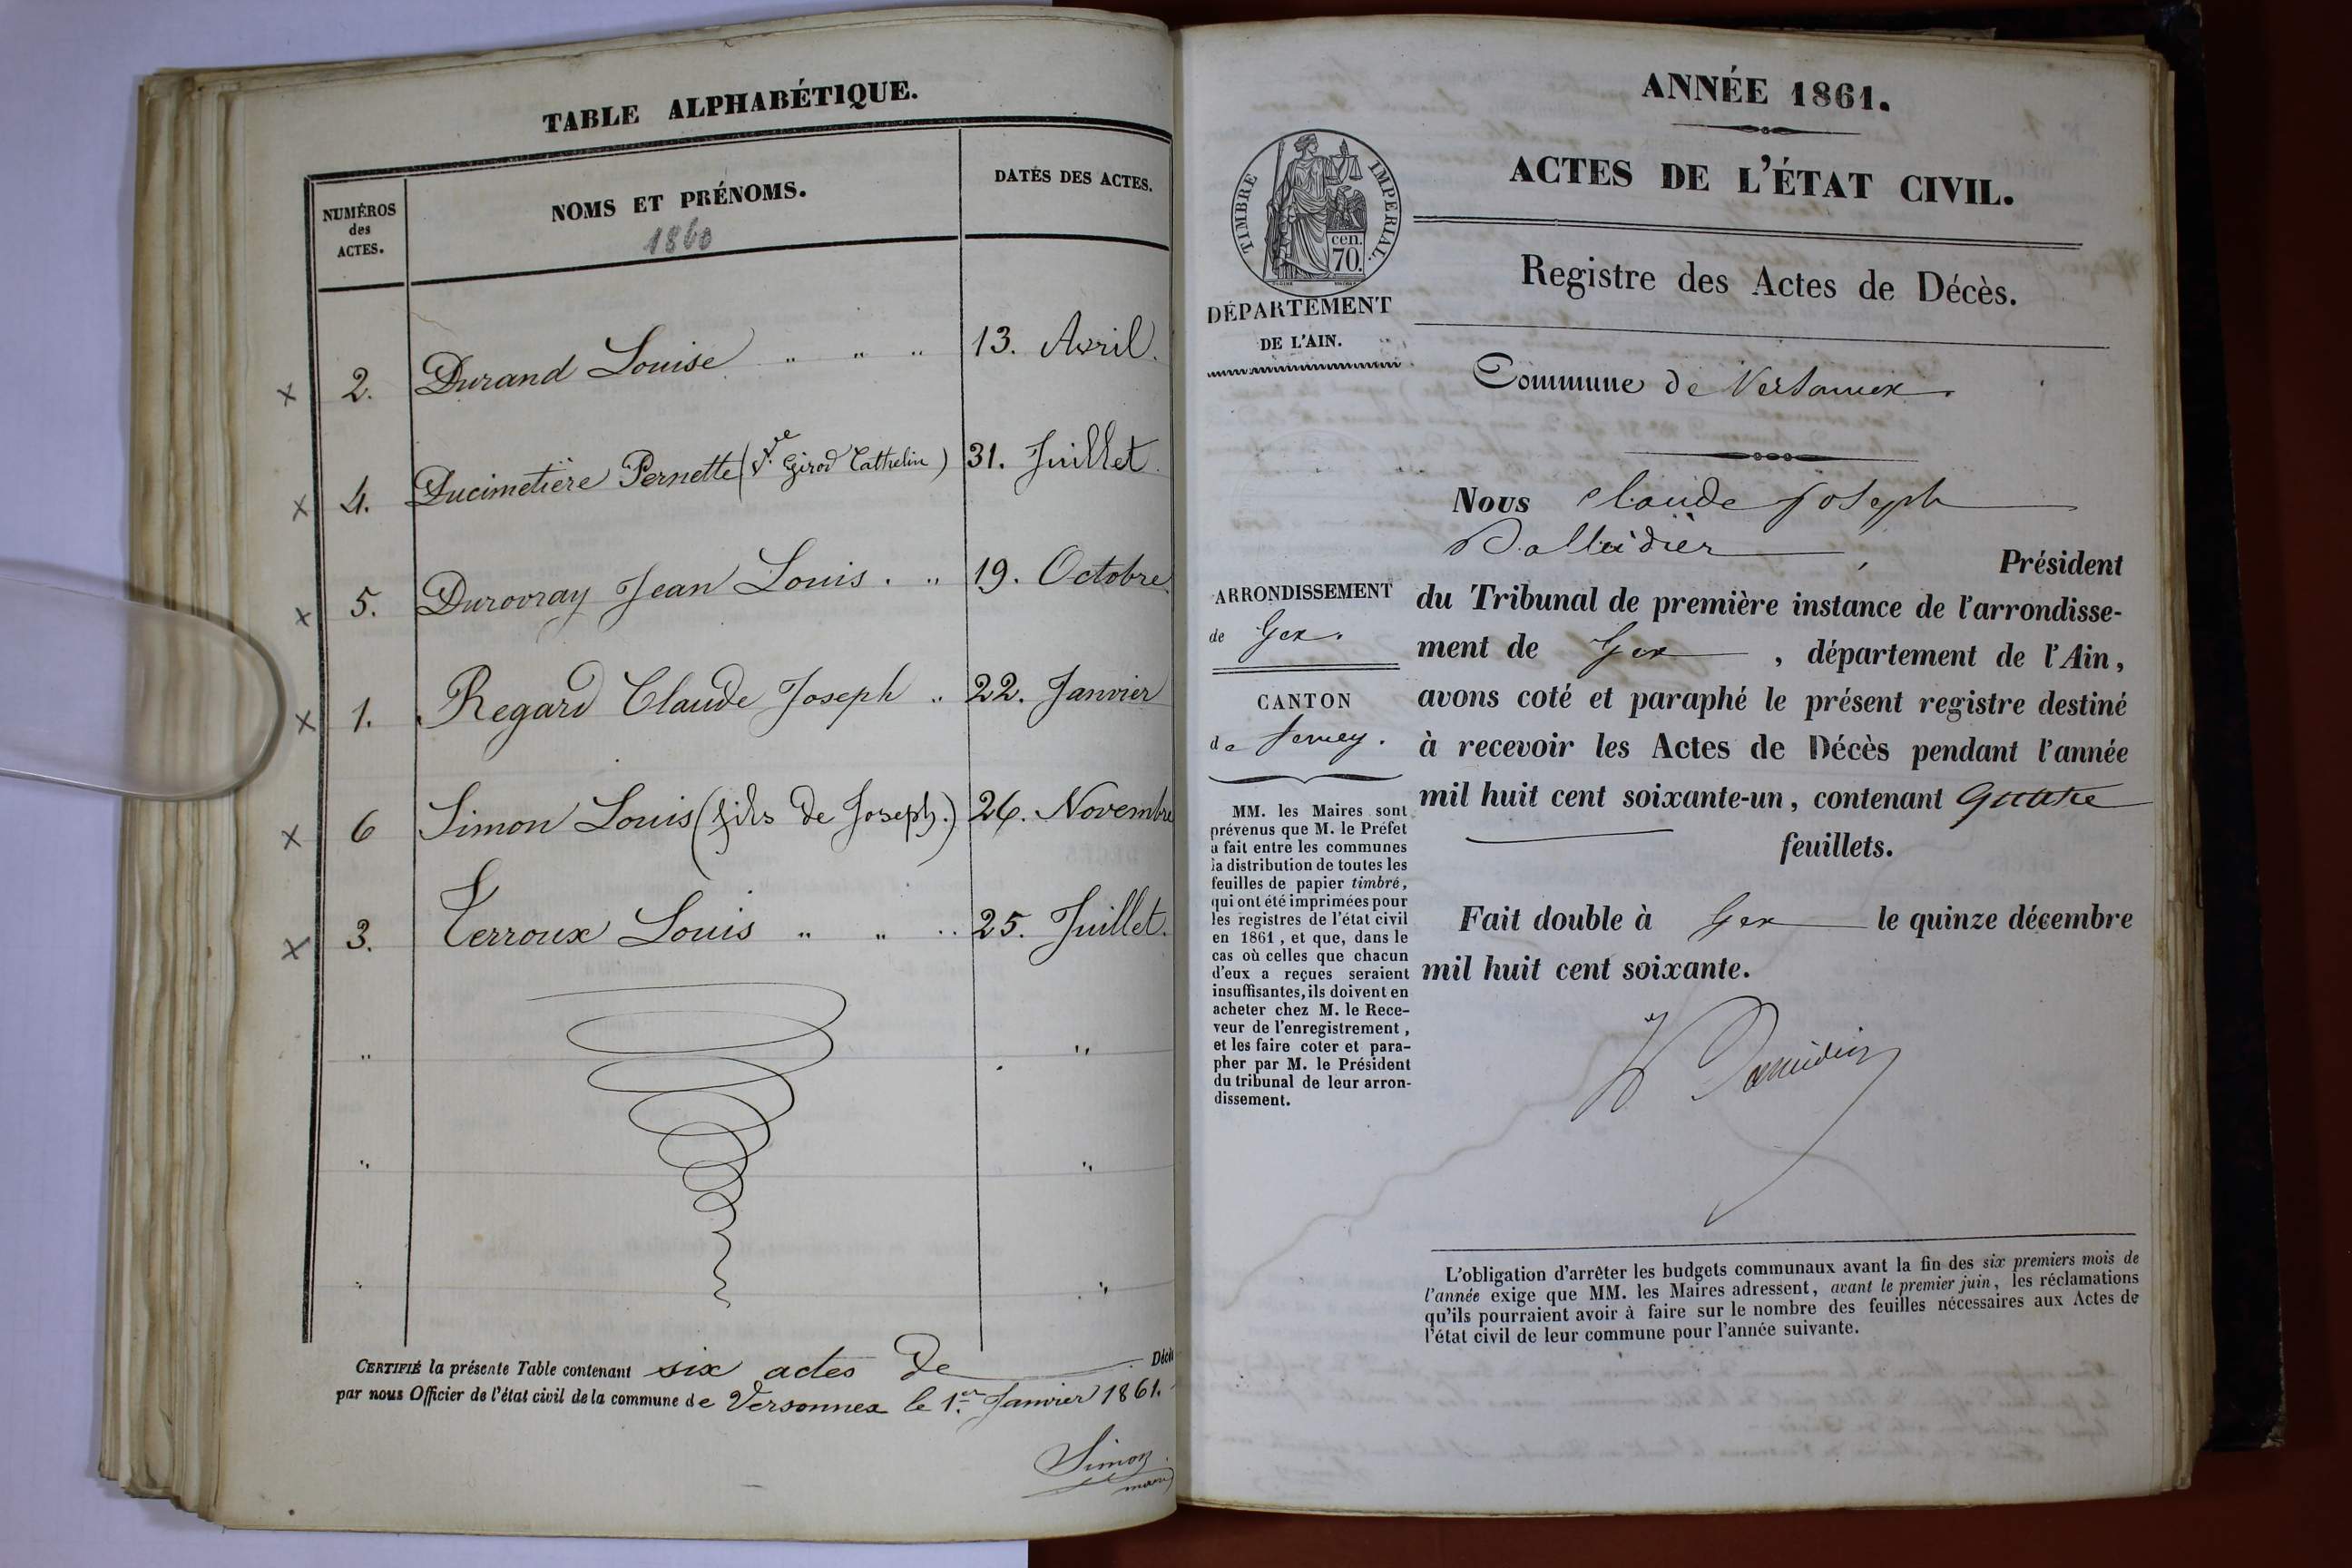 TABLE ALPHABÉTIQUE.
NUMÉROS
des
ACTES.
NOMS ET PRÉNOMS.
1860
DATES DES ACTES.
x 2. Durand Louise " " " 13. Avril.
x 4. Ducimetière Pernette (Vve Girod Cathelin) 31. Juillet.
x 5. Durovray Jean Louis . " 19. Octobre
x 1. Regard Claude Joseph " 22. Janvier
x 6 Simon Louis (fils de Joseph.) 26. Novembre
x 3. Terroux Louis " " " 25. Juillet.
" "
" "
" "
CERTIFIÉ la présente Table contenant six actes de Décè
par nous Officier de l'état civil de la commune de Versonnex le 1er Janvier 1861.
Simon
maire
ANNÉE 1861.
ACTES DE L'ÉTAT CIVIL.
TIMBRE IMPERIAL.
cen.
70.
Registre des Actes de Décès.
DÉPARTEMENT
DE L'AIN.
Commune de Versonnex.
Nous Claude Joseph
Président
ARRONDISSEMENT
de Gex.
CANTON
de Ferney.
du Tribunal de première instance de l'arrondisse-
ment de Gex, département de l'Ain,
avons coté et paraphé le présent registre destiné
à recevoir les Actes de Décès pendant l'année
mil huit cent soixante-un, contenant Quatre
feuillets.
Fait double à Gex le quinze décembre
mil huit cent soixante.
MM. les Maires sont
prévenus que M. le Préfet
a fait entre les communes
la distribution de toutes les
feuilles de papier timbré,
qui ont été imprimées pour
les registres de l'état civil
en 1861, et que, dans le
cas où celles que chacun
d'eux a reçues seraient
insuffisantes, ils doivent en
acheter chez M. le Rece-
veur de l'enregistrement,
et les faire coter et para-
pher par M. le Président
du tribunal de leur arron-
dissement.
L'obligation d'arrêter les budgets communaux avant la fin des six premiers mois de
l'année exige que MM. les Maires adressent, avant le premier juin, les réclamations
qu'ils pourraient avoir à faire sur le nombre des feuilles nécessaires aux Actes de
l'état civil de leur commune pour l'année suivante.